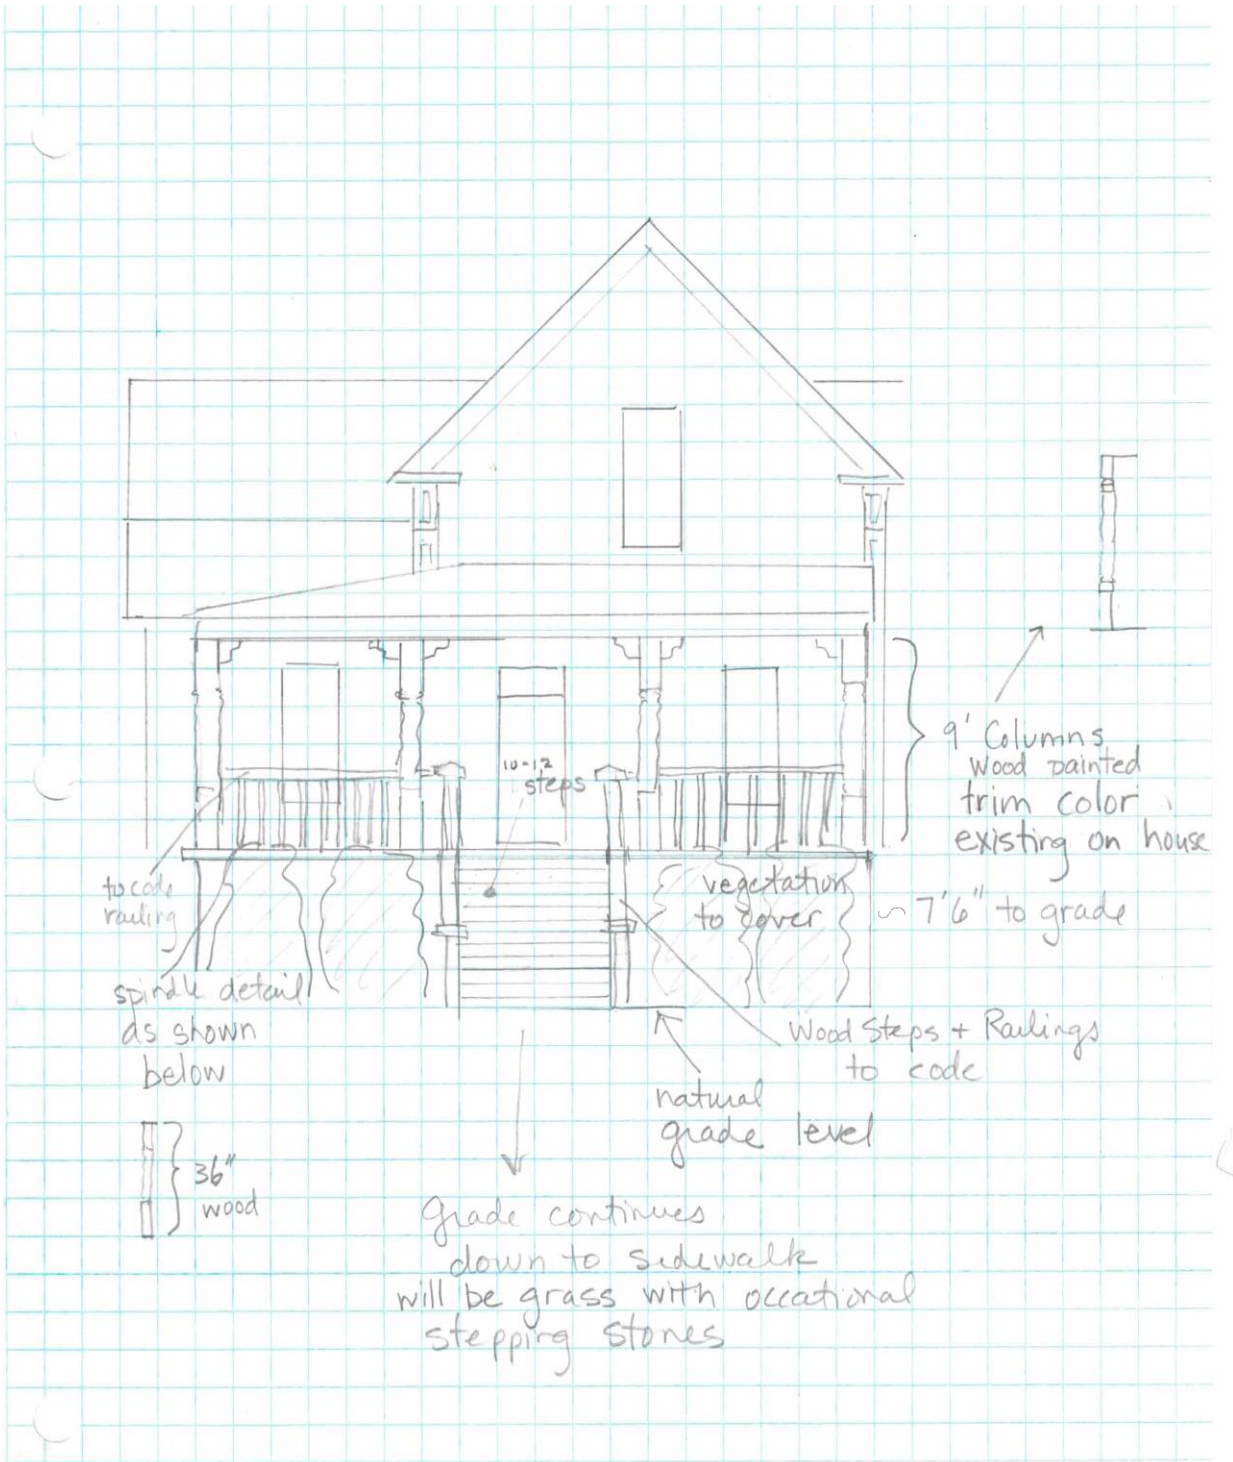 10-12
steps
9' Columns
Wood painted
trim color
existing on house
to code
railing
vegetation
to cover
~ 7'6" to grade
spindle detail
as shown
below
Wood Steps + Railings
to code
natural
grade level
36"
wood
Grade continues
down to sidewalk
will be grass with occational
stepping stones